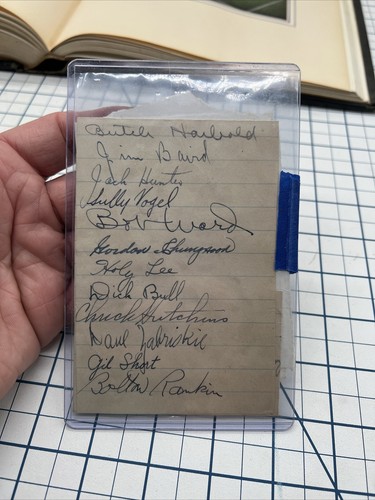 Butch Harbold
Jim Baird
Jack Hunter
Gully Vogel
Bob Ward
Gordon Thompson
Holy Lee
Dick Bull
Chuck Hutchins
Dave Zabriskie
Gil Short
Bolton Rankin